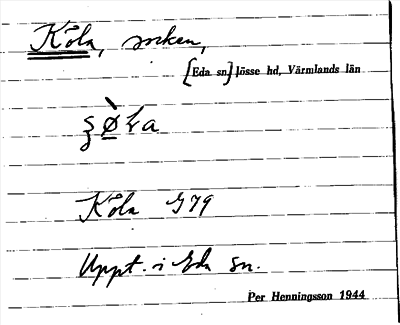 Köla, socken,
[Eda sn] Jösse hd, Värmlands län
Köla G79
Uppt. i Eda sn.
Per Henningsson 1944